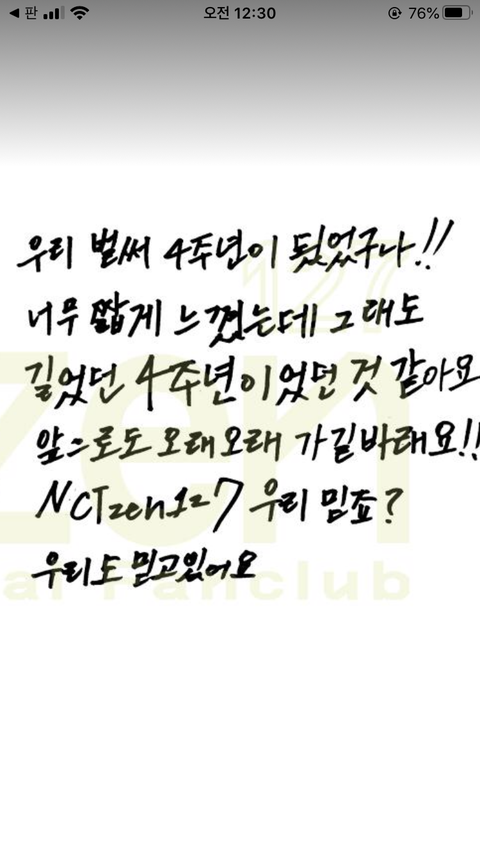 판 오전 12:30 76%
우리 벌써 4주년이 됬었구나!!
너무 짧게 느꼈는데 그래도
길었던 4주년이었던 것 같아요
앞으로도 오래오래 가길바래요!!
NCTzen127 우리 믿죠?
우리도 믿고있어요
127
zen
al Fanclub